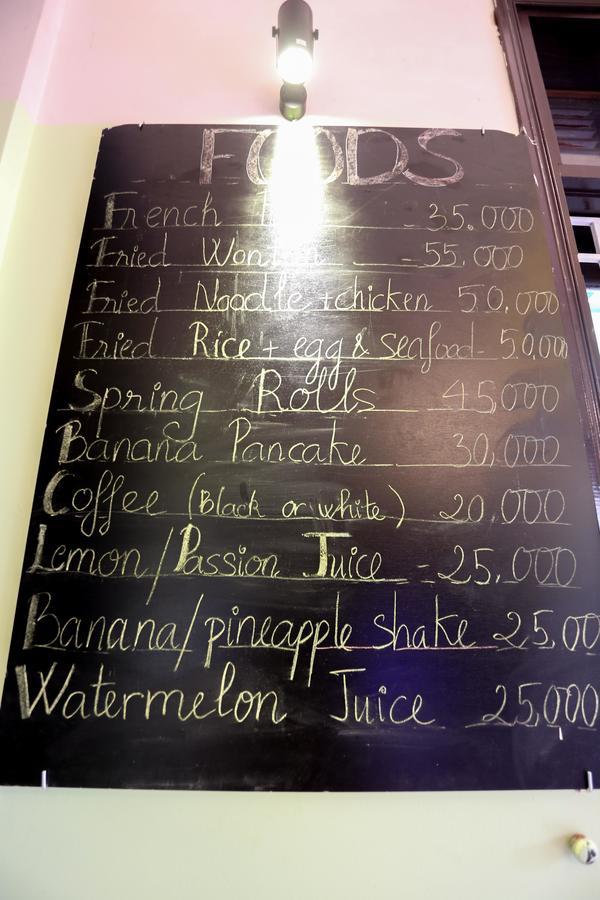 FOODS
French - 35.000
Fried Wonton - 55.000
Fried Noodle + chicken 50,000
Fried Rice + egg & seafood - 50,000
Spring Rolls 45,000
Banana Pancake 30,000
Coffee (Black or white) 20,000
Lemon/Passion Juice - 25,000
Banana/pineapple shake 25.00
Watermelon Juice 25,000